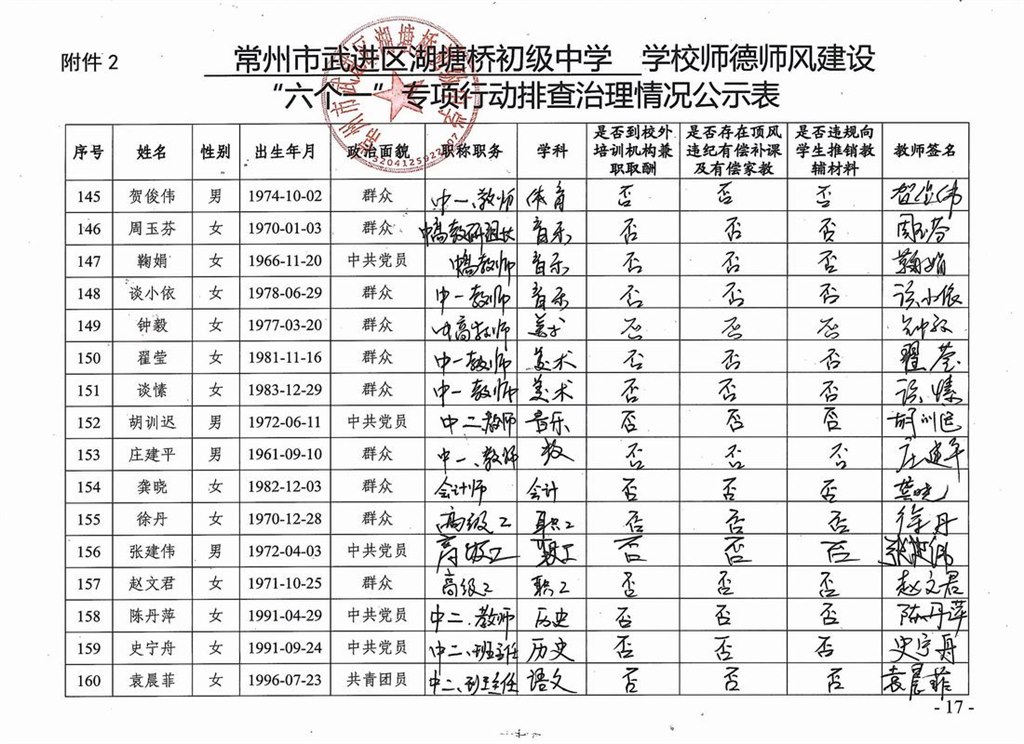 附件2
常州市武进区湖塘桥初级中学 学校师德师风建设
“六个一”专项行动排查治理情况公示表
序号 姓名 性别 出生年月 政治面貌 职称职务 学科 是否到校外培训机构兼职取酬 是否存在顶风违纪有偿补课及有偿家教 是否违规向学生推销教辅材料 教师签名
145 贺俊伟 男 1974-10-02 群众 中一、教师 体育 否 否 否 贺俊伟
146 周玉芬 女 1970-01-03 群众 中高教研组长 音乐 否 否 否 周玉芬
147 鞠娟 女 1966-11-20 中共党员 中高教师 音乐 否 否 否 鞠娟
148 谈小依 女 1978-06-29 群众 中一教师 音乐 否 否 否 谈小依
149 钟毅 女 1977-03-20 群众 中高教师 美术 否 否 否 钟毅
150 翟莹 女 1981-11-16 群众 中一教师 美术 否 否 否 翟莹
151 谈愫 女 1983-12-29 群众 中一教师 美术 否 否 否 谈愫
152 胡训迟 男 1972-06-11 中共党员 中二教师 音乐 否 否 否 胡训迟
153 庄建平 男 1961-09-10 群众 中一、教师 否 否 否 庄建平
154 龚晓 女 1982-12-03 群众 会计师 会计 否 否 否 龚晓
155 徐丹 女 1970-12-28 群众 高级工 职工 否 否 否 徐丹
156 张建伟 男 1972-04-03 中共党员 高级工 职工 否 否 否 张建伟
157 赵文君 女 1971-10-25 群众 高级工 职工 否 否 否 赵文君
158 陈丹萍 女 1991-04-29 中共党员 中二、教师 历史 否 否 否 陈丹萍
159 史宁舟 女 1991-09-24 中共党员 中二、班主任 历史 否 否 否 史宁舟
160 袁晨菲 女 1996-07-23 共青团员 中二、班主任 语文 否 否 否 袁晨菲
- 17 -